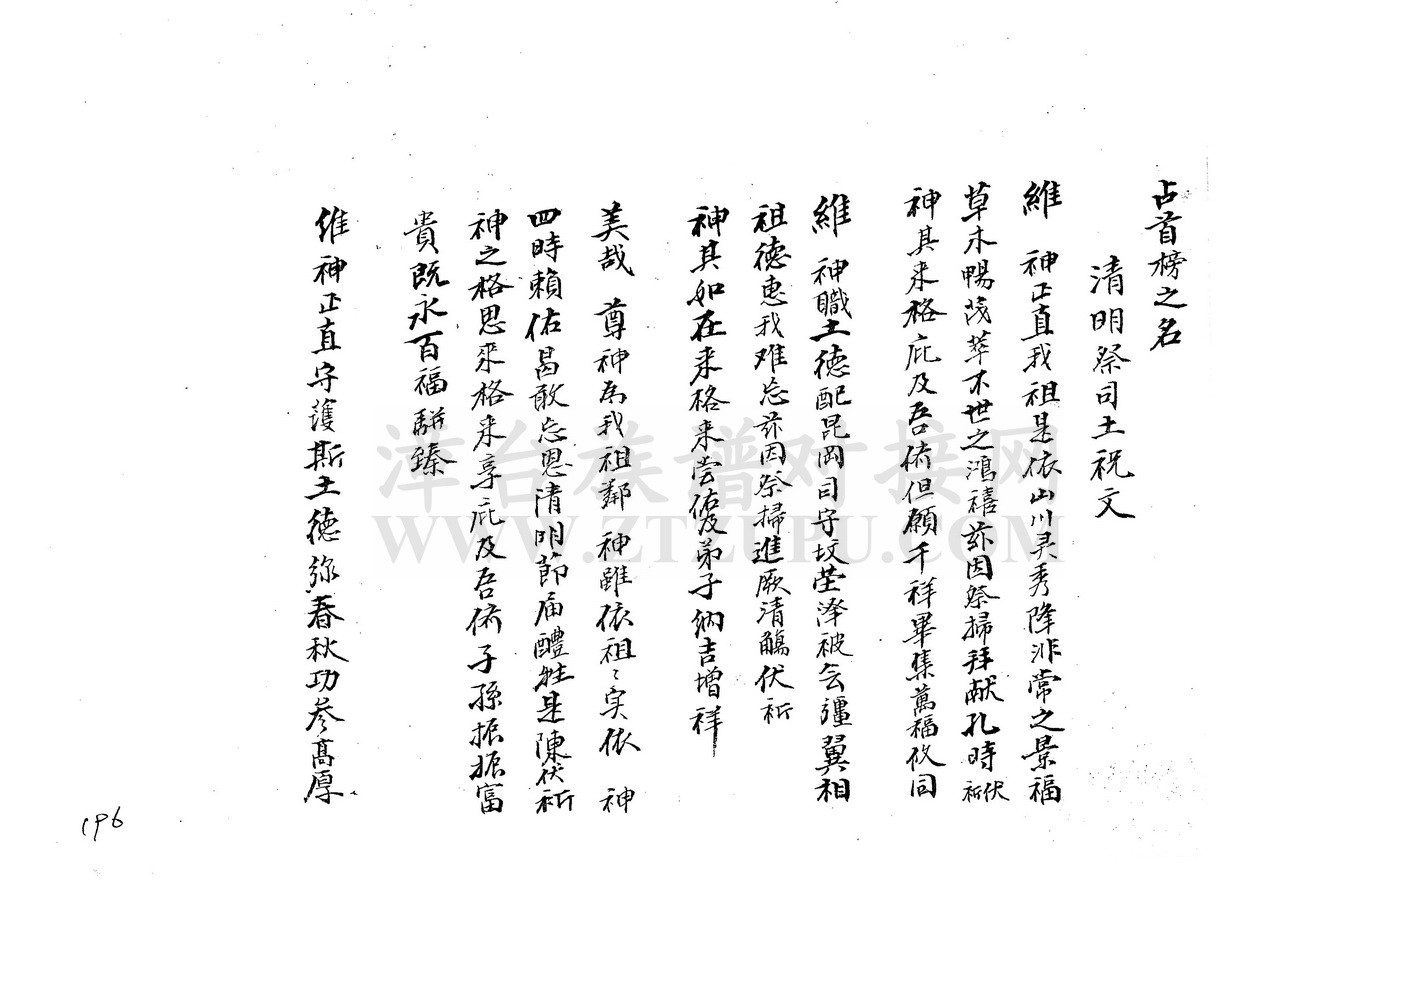 占首榜之名
清明祭司土祝文
維 神正直我祖是依山川灵秀降非常之景福
草木暢茂萃不世之鴻禧兹因祭掃拜献孔時伏祈
神其来格庇及吾侪但願千祥畢集萬福攸同
維 神職土德配昆岡司守坟茔泽被会疆翼相
祖德惠我难忘兹因祭掃進厥清觴伏祈
神其如在来格来尝佑及弟子納吉增祥
美哉 尊神為我祖鄰 神雖依祖〻实依 神
四時賴佑曷敢忘恩清明節届醴牲是陳伏祈
神之格思来格来享庇及吾侪子孫振振富
貴既永百福駢臻
维神正直守護斯土德弥春秋功参高厚
196
泽台族谱对接网
WWW.ZTZUPU.COM